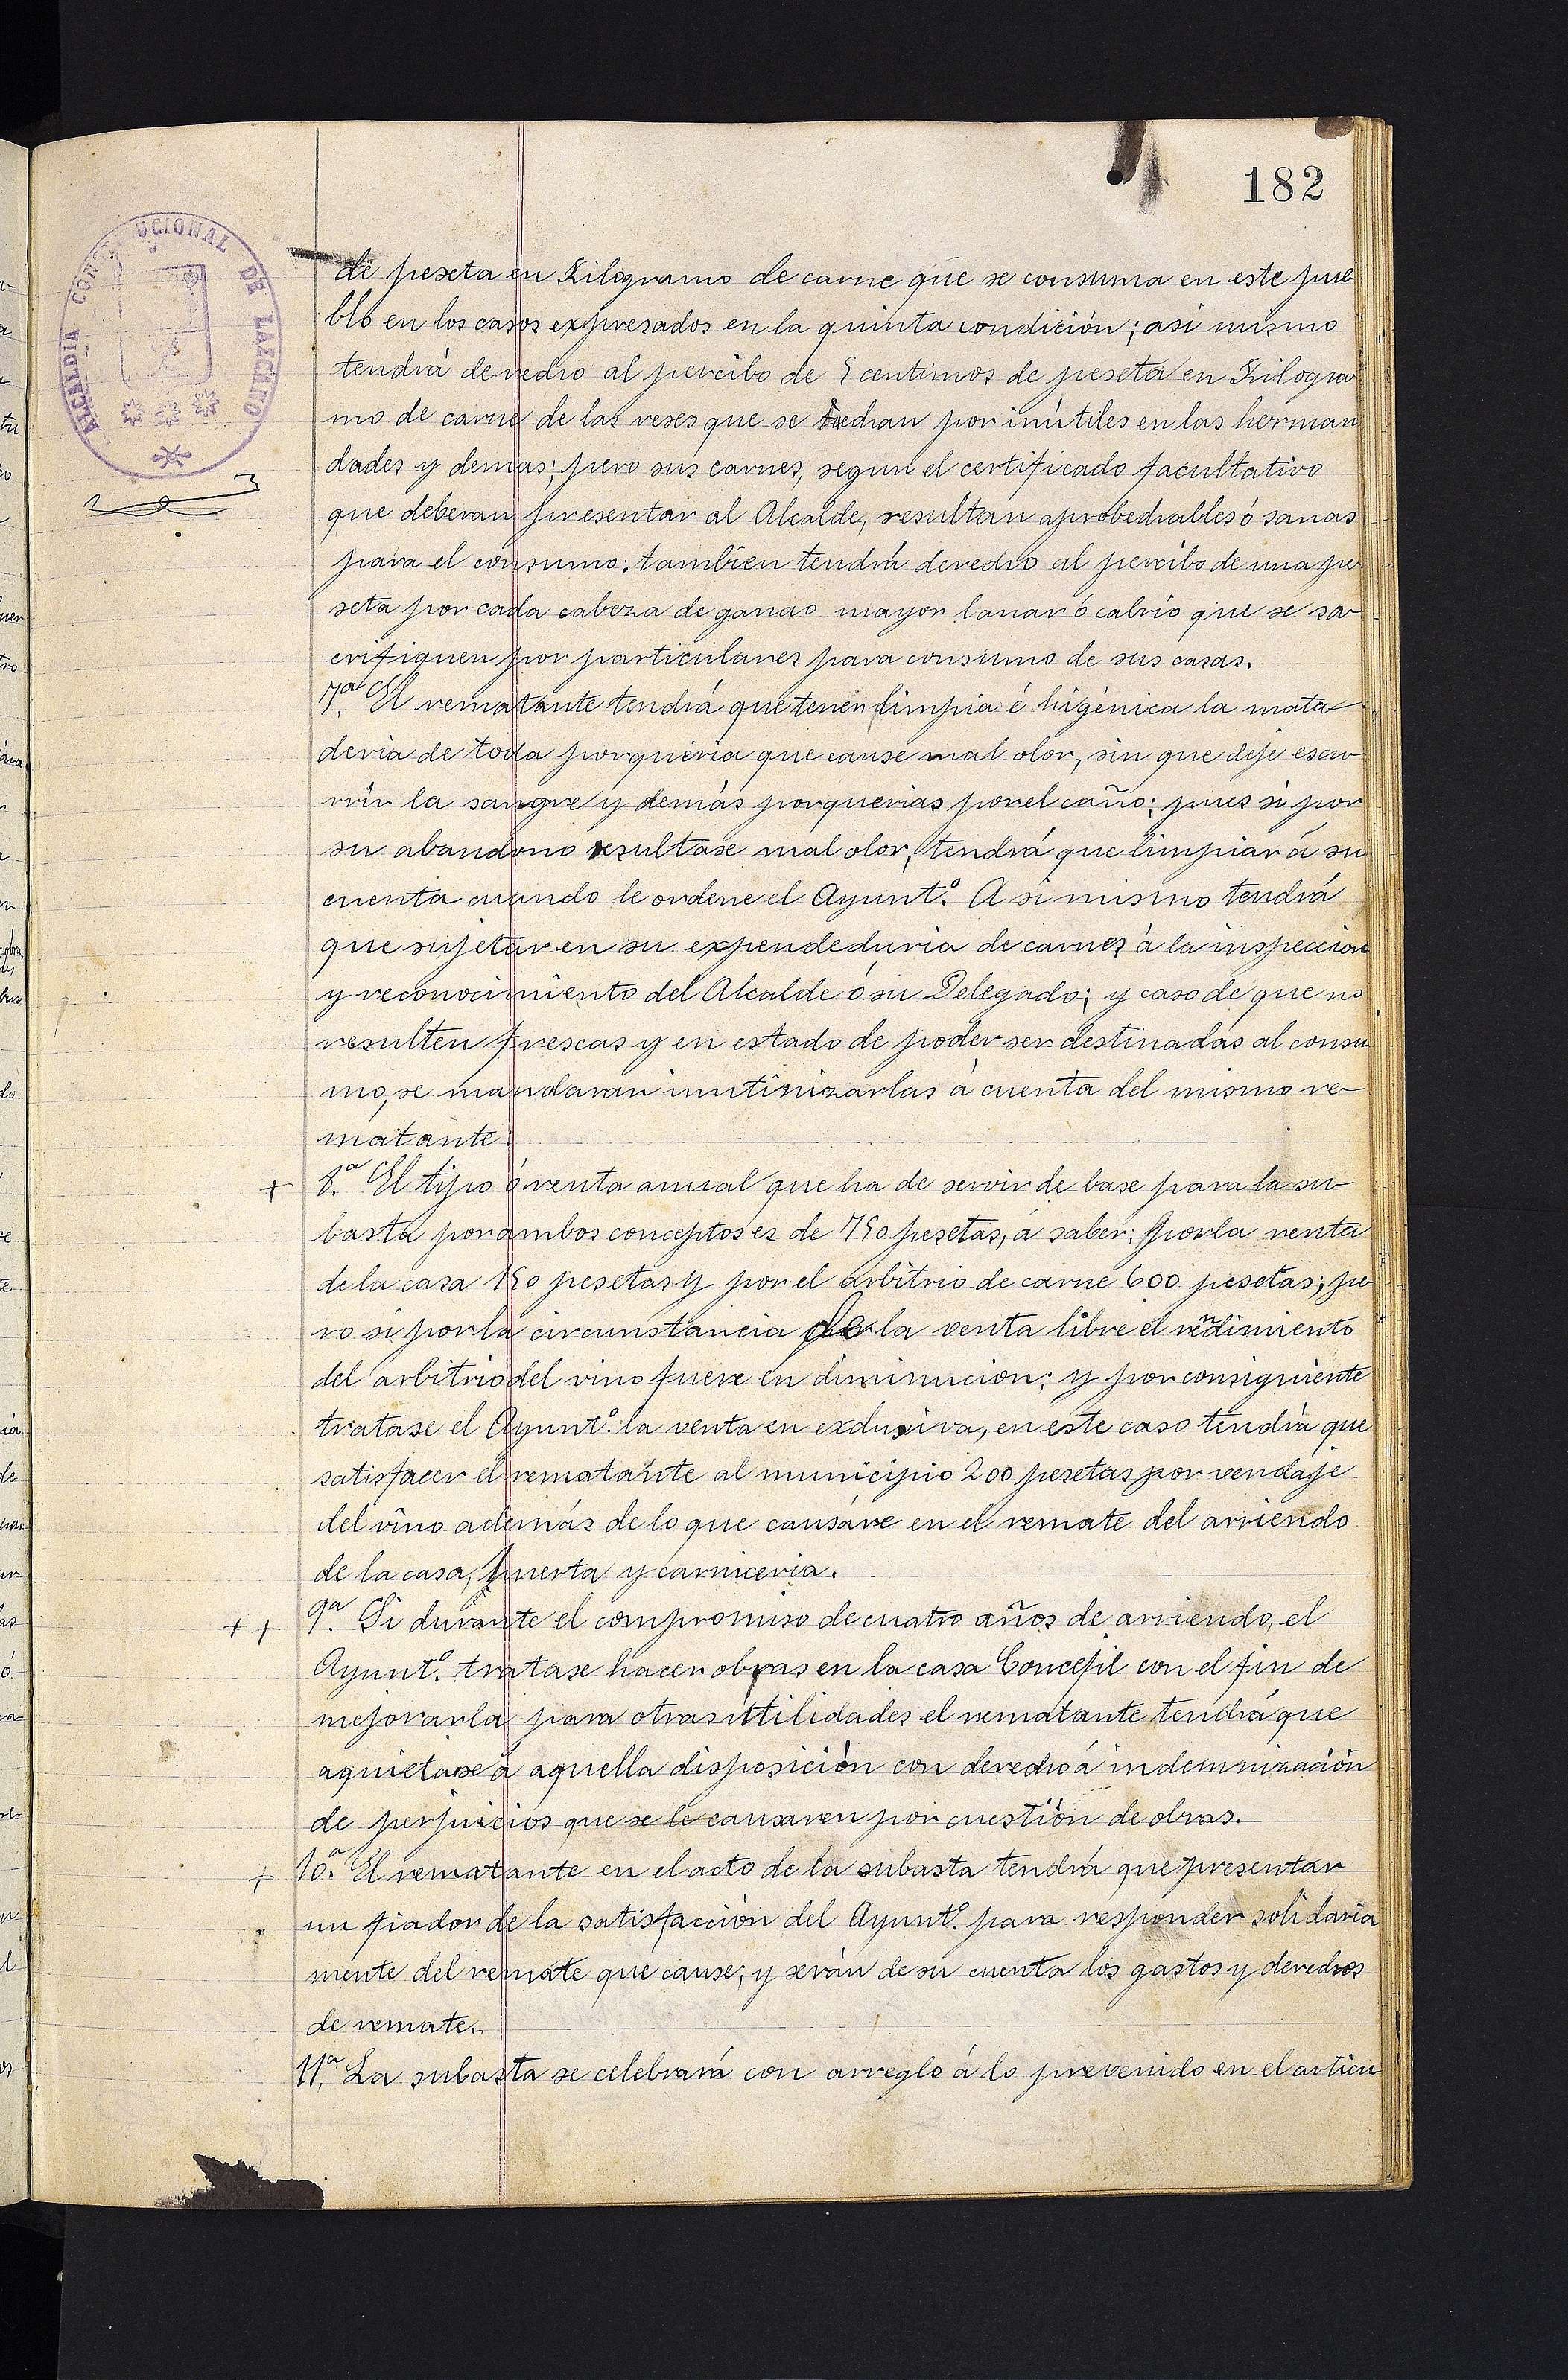 182
ALCALDIA CONSTITUCIONAL DE LAZCANO
de peseta en Kilogramo de carne que se consuma en este pue
blo en los casos expresados en la quinta condición; asi mismo
tendrá derecho al percibo de 5 centimos de peseta en Kilogra
mo de carne de las reses que se hechan por inútiles en las herman
dades y demas; pero sus carnes, segun el certificado facultativo
que deberan presentar al Alcalde, resultan aprobechables ó sanas
para el consumo: tambien tendrá derecho al percibo de una pe
seta por cada cabeza de ganao mayor lanar ó cabrio que se sa
crifiquen por particulares para consumo de sus casas.
7.ª El rematante tendrá que tener limpia é higénica la mata
deria de toda porqueria que cause mal olor, sin que deje escu
rrir la sangre y demás porquerias por el caño; pues si por
su abandono resultase mal olor, tendrá que limpiar á su
cuenta cuando le ordene el Ayunt.º A si mismo tendrá
que sujetar en su expendeduria de carnes á la inspeccion
y reconocimiento del Alcalde ó su Delegado; y caso de que no
resulten frescas y en estado de poder ser destinadas al consu
mo, se mandaran inutinizarlas á cuenta del mismo re-
matante.
+ 8.ª El tipo ó renta anual que ha de servir de base para la su-
basta por ambos conceptos es de 750 pesetas, á saber; por la renta
de la casa 150 pesetas y por el arbitrio de carne 600 pesetas; pe
ro si por la circunstancia de la venta libre el rendimiento
del arbitrio del vino fuere en diminucion; y por consiguiente
tratase el Ayunt.º la venta en exclusiva, en este caso tendria que
satisfacer el rematante al municipio 200 pesetas por vendaje
del vino además de lo que causáre en el remate del arriendo
de la casa, huerta y carniceria.
++ 9.ª Si durante el compromiso de cuatro años de arriendo, el
Ayunt.º tratase hacer obras en la casa Concejil con el fin de
mejorarla para otras útilidades el rematante tendrá que
aquietarse á aquella disposición con derecho á indemnización
de perjuicios que se le causaren por cuestión de obras.
+ 10.ª El rematante en el acto de la subasta tendrá que presentar
un fiador de la satisfacción del Ayunt.º para responder solidaria
mente del remate que cause; y serán de su cuenta los gastos y derechos
de remate.
11.ª La subasta se celebrará con arreglo á lo prevenido en el articu